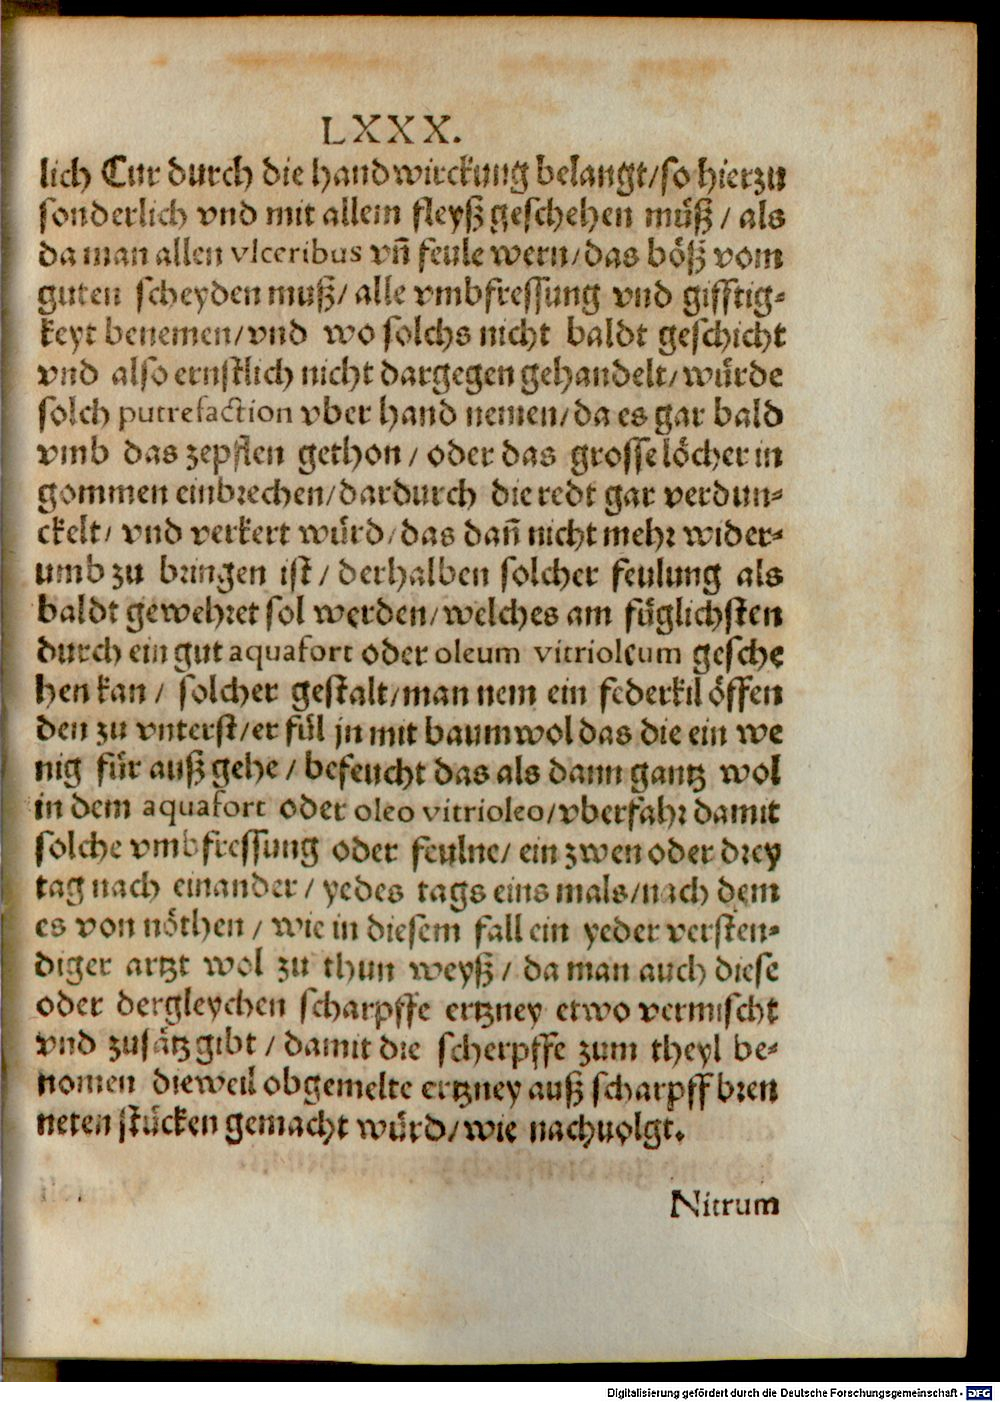 LXXX.
lich Cur durch die handwirckung belangt/so hierzu
sonderlich vnd mit allem fleyß geschehen muͤß/ als
da man allen vlceribus vñ feule wern/das boͤß vom
guten scheyden muß/ alle vmbfressung vnd gifftig-
keyt benemen/vnd wo solchs nicht baldt geschicht
vnd also ernstlich nicht dargegen gehandelt/wuͤrde
solch putrefaction vber hand nemen/da es gar bald
vmb das zepflen gethon/ oder das grosse loͤcher in
gommen einbrechen/dardurch die redt gar verdun-
ckelt/ vnd verkert wuͤrd/das dañ nicht mehr wider-
umb zu bringen ist/ derhalben solcher feulung als
baldt gewehret sol werden/welches am fuͤglichsten
durch ein gut aquafort oder oleum vitrioleum gesche
hen kan/ solcher gestalt/man nem ein federkil oͤffen
den zu vnterst/er fuͤl jn mit baumwol das die ein we
nig fuͤr auß gehe/ befeucht das als dann gantz wol
in dem aquafort oder oleo vitrioleo/vberfahr damit
solche vmbfressung oder feulne/ ein zwen oder drey
tag nach einander/ yedes tags eins mals/nach dem
es von noͤthen/ wie in diesem fall ein yeder versten-
diger artzt wol zu thun weyß/ da man auch diese
oder dergleychen scharpffe ertzney etwo vermischt
vnd zusaͤtz gibt/ damit die scherpffe zum theyl be-
nomen dieweil obgemelte ertzney auß scharpff bren
neten stuͤcken gemacht wuͤrd/wie nachuolgt.
Nitrum
Digitalisierung gefördert durch die Deutsche Forschungsgemeinschaft - DFG